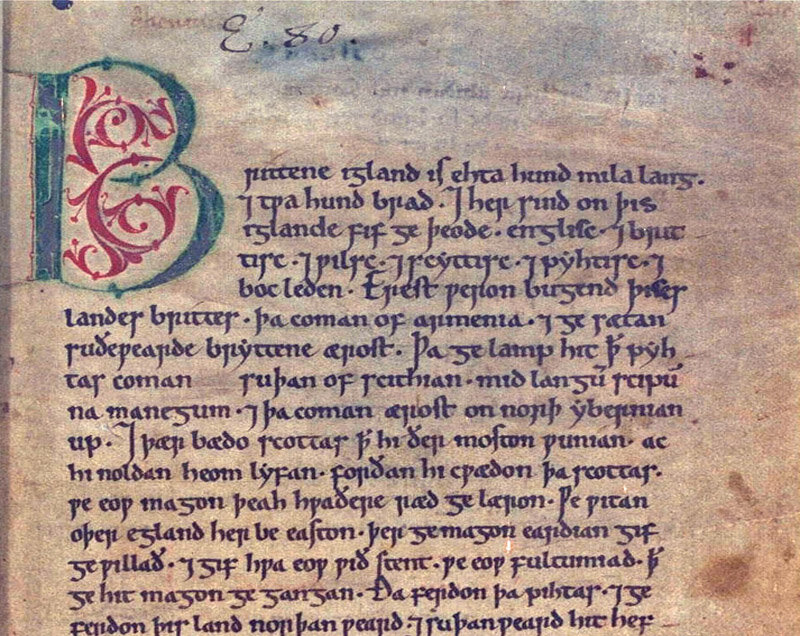 E. 80.
Brittene igland is ehta hund mila lang.
⁊ tƿa hund brad. ⁊ her sind on þis
iglande fif ge þeode. englisc. ⁊ brit
tisc. ⁊ ƿilsc. ⁊ scyttisc. ⁊ pyhtisc. ⁊
boc leden. Erest ƿeron bugend þises
landes brittes. þa coman of armenia. ⁊ ge sætan
suðeƿearde bryttene ærost. Þa ge lamp hit ꝥ pyh
tas coman suþan of scithian. mid langū scipū
na manegum. ⁊ þa coman ærost on norþ ybernian
up. ⁊ þær bædo scottas ꝥ hi ðer moston ƿunian. ac
hi noldan heom lyfan. forðan hi cƿædon þa scottas.
ƿe eoƿ magon þeah hƿaðere ræd ge læron. Ƿe ƿitan
oþer egland her be easton. þer ge magon eardian gif
ge ƿillað. ⁊ gif hƿa eoƿ ƿið stent. ƿe eoƿ fultumiað. ꝥ
ge hit magon ge gangan. Ða ferdon þa pihtas. ⁊ ge
ferdon þis land norþan ƿeard ⁊ suþan ƿeard hit hef